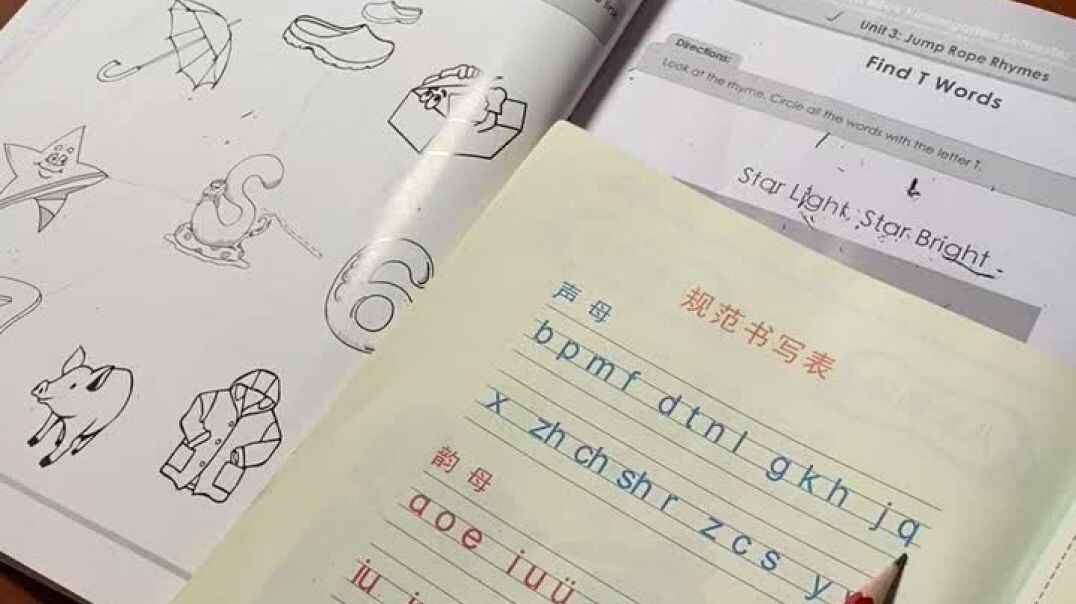 Unit 3: Jump Rope Rhymes
Find T Words
Directions:
Look at the rhyme. Circle all the words with the letter T.
Star Light, Star Bright
规范书写表
声母
b p m f d t n l g k h j q
x zh ch sh r z c s y
韵母
a o e i u ü
iu
6